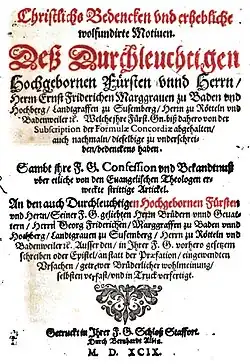 Christliche Bedencken vnd erhebliche
wolfundirte Motiuen.
Deß Durchleuchtigen
Hochgebornen Fürsten vnnd Herrn/
Herrn Ernst Friderichen Marggrauen zu Baden vnd
Hochberg/ Landtgraffen zu Susemberg/ Herrn zu Rötteln vnd
Badenweiler ꝛc. Welche jhre Fürst. Gn. biß dahero von der
Subscription der Formulæ Concordiæ abgehalten/
auch nachmaln/ dieselbige zu vnderschrei-
ben/ bedenckens haben.
Sambt jhrer F. G. Confession vnd Bekandtnuß
vber etliche von den Euangelischen Theologen er-
weckte strittige Artickel.
An den auch Durchleuchtigen Hochgebornen Fürsten
vnd Herrn/ Seiner F. G. geliebten Herrn Brüdern vnnd Geuat-
tern/ Herrn Georg Friderichen/ Marggraffen zu Baden vnnd
Hochberg/ Landtgrauen zu Susemberg/ Herrn zu Rötteln vnd
Badenweiler ꝛc. Ausser den/ in Jhrer F. G. vorhero gesetztem
schreiben oder Epistel/ an statt der Præfation/ eingewendten
Vrsachen/ getrewer Brüderlicher wohlmeinung/
selbsten verfast/ vnd in Truck verfertiget.
Getruckt in Jhrer F. G. Schloß Staffort.
Durch Bernhardt Albin.
M. D. XCIX.